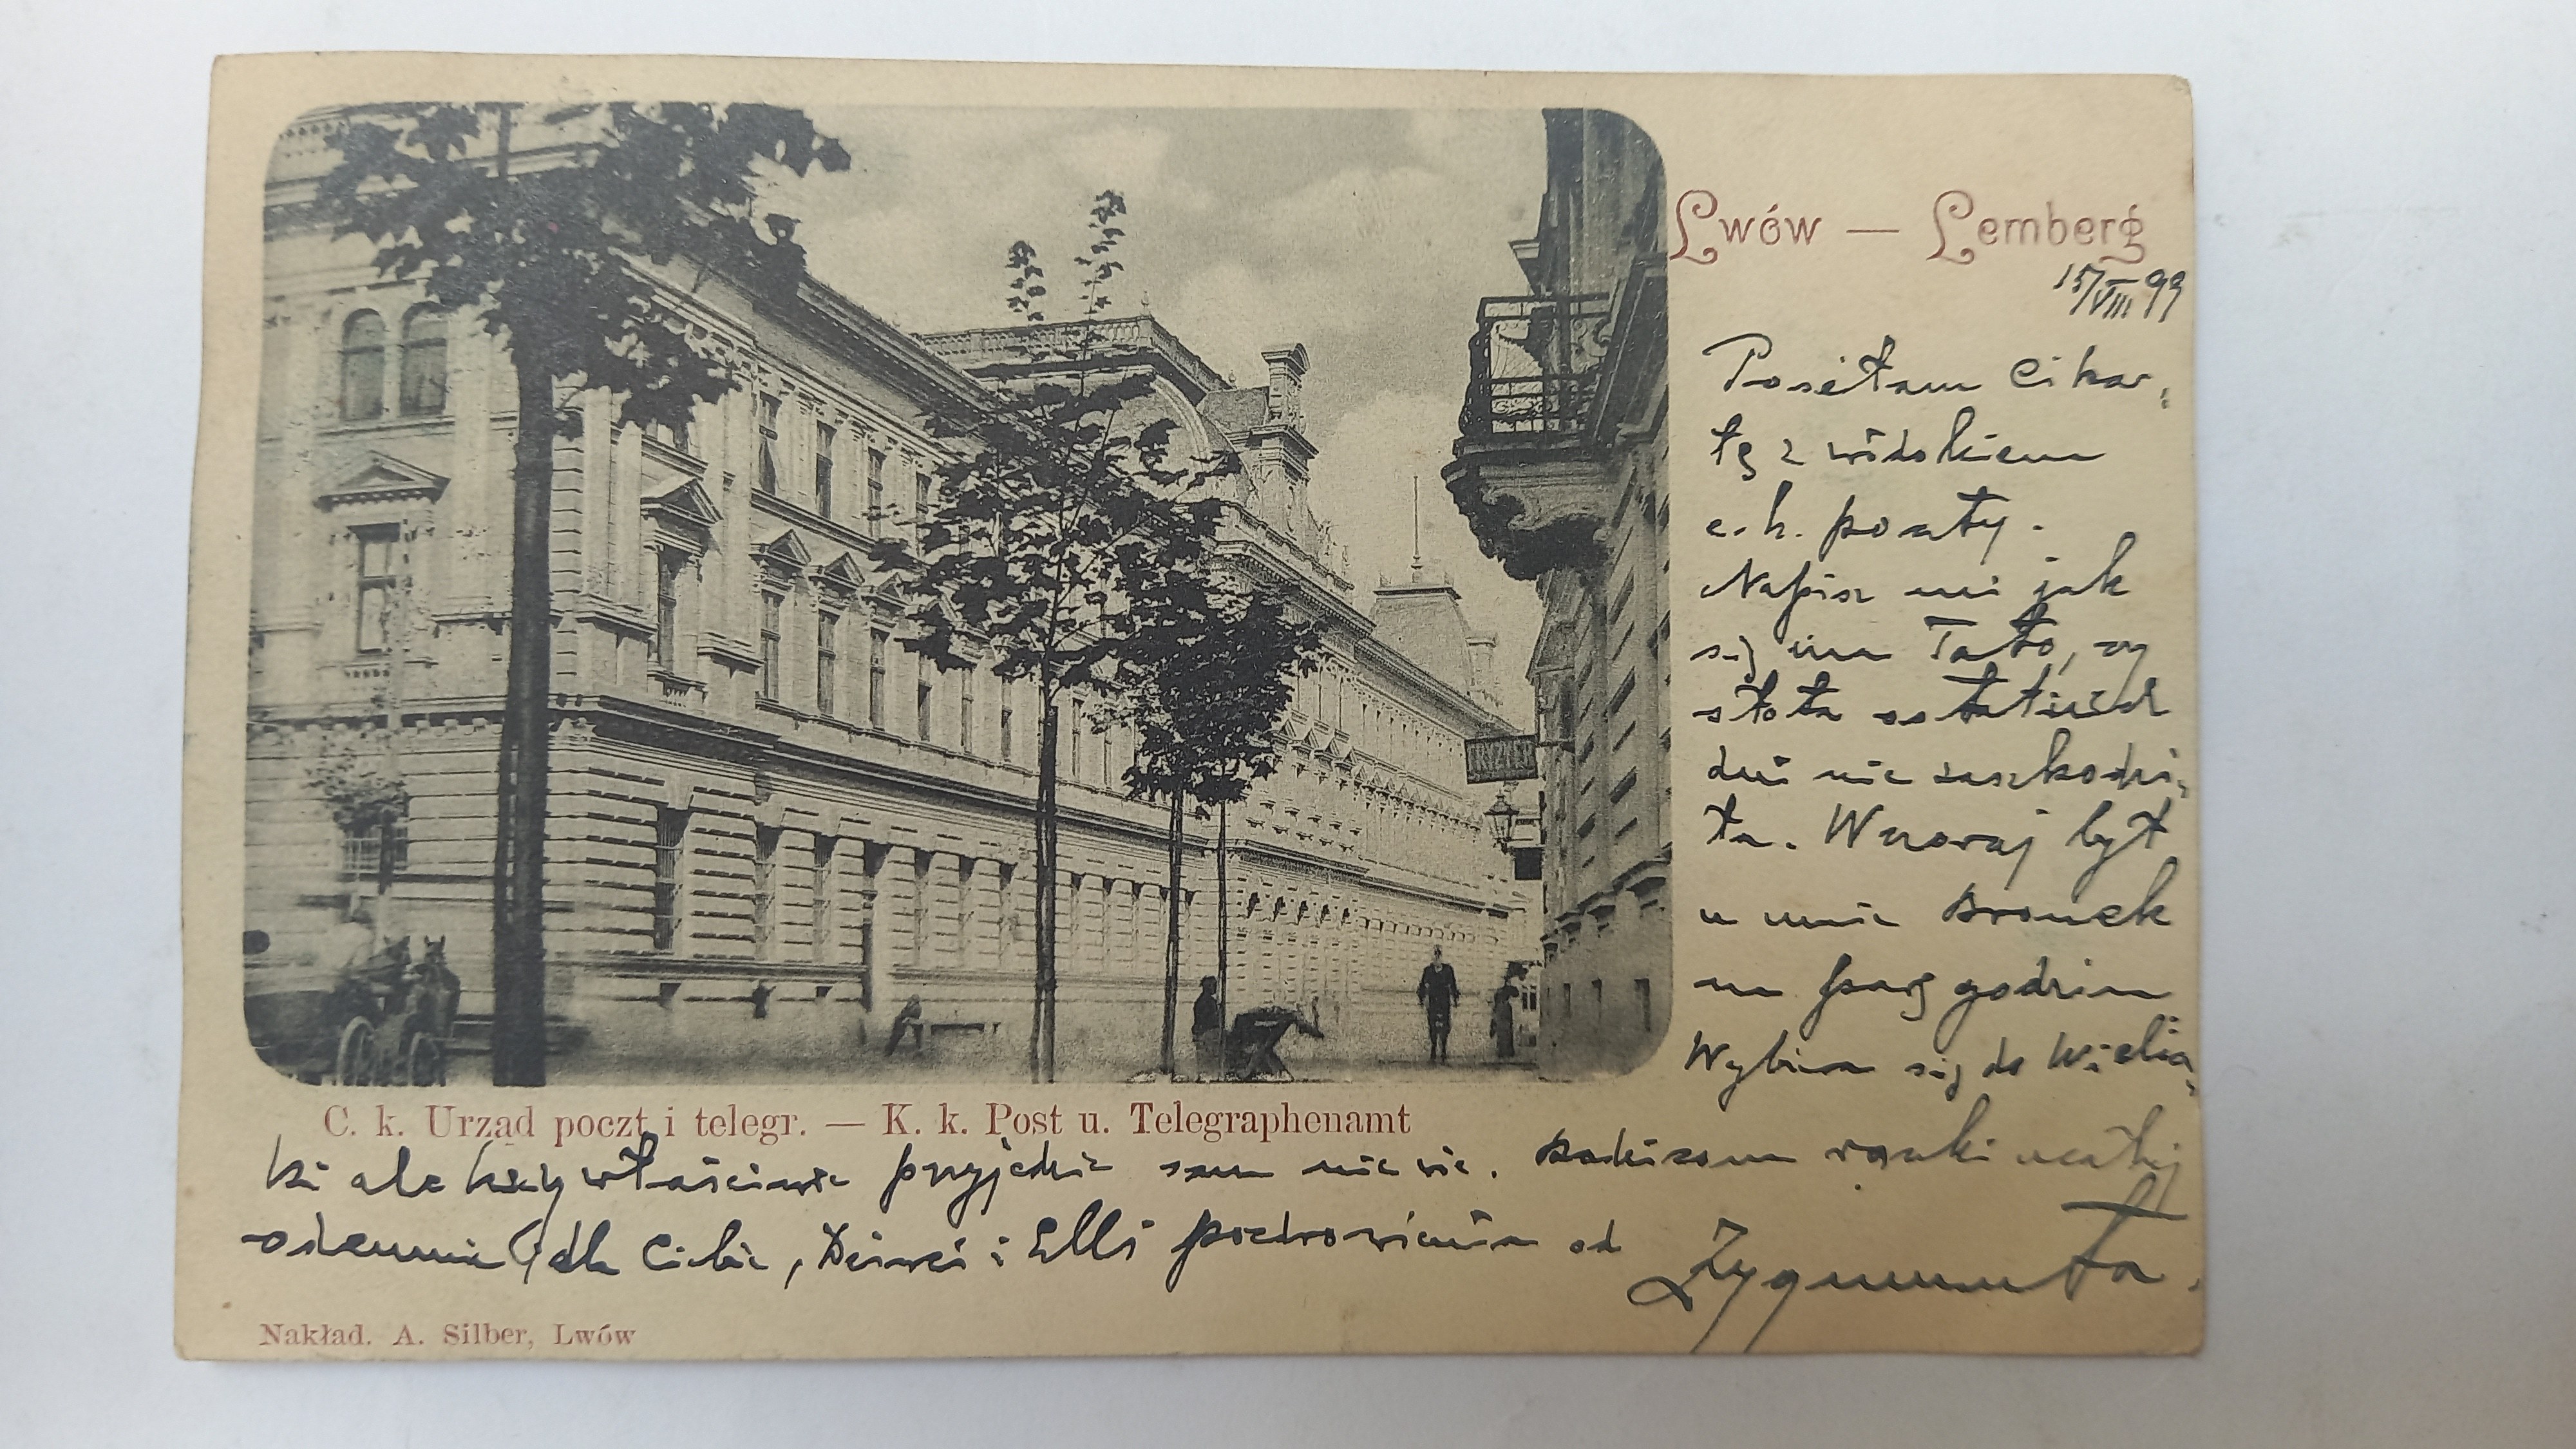 Lwów — Lemberg
15/VIII 99
Posełam Ci kar„
tę z widokiem
c. k. poczty.
Napisz mi jak
się ma Tato, czy
słota ostatnich
dni nie zaszkodzi„
ła. Wczoraj był
u mnie Bronek
na parę godzin
Wybiera się do Wielicz„
FRYZYER
C. k. Urząd poczt i telegr. — K. k. Post u. Telegraphenamt
ki ale kiedy właściwie przyjedzie sam nie wie. Rodzicom rączki
dla Ciebie, i Elli pozdrowienia od Zygmunta.
Nakład. A. Silber, Lwów